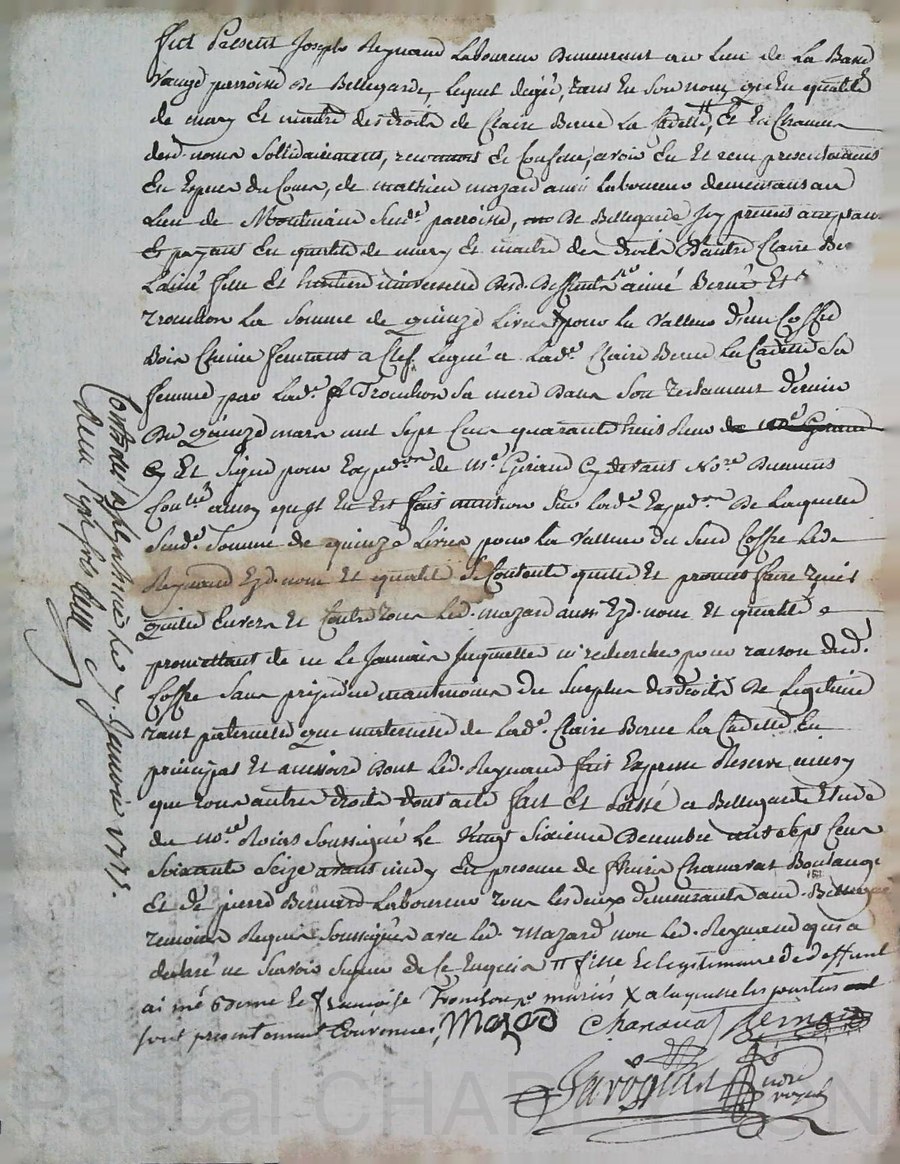 fut Present Joseph Reynaud Laboureur Demeurant au Lieu de La Basse
parroisse de Bellegarde, Lequel de gré, tant En Son nom, qu'En qualité
de mary Et maitre des droits de Claire Berne La Cadette, ╫ Et En Chacun
desd. noms Sollidairement, reconnoit Et Confesse, avoir Eu Et reçu presentement
En Espece du Cours, de mathieu mazard aussi Laboureur demeurant au
Lieu de Susd.e parroisse, De Bellegarde Icy present acceptant
Et payant En qualité de mary Et maitre des droits D'autre Claire Ber
L'ainé fille Et heritiere universelle Desd. Deffunts aimé Berne Et
Tronchon La Somme de quinze Livres X pour La Valleur d'un Coffre
Bois Chene fermant a Clef, Legué a Lad.e Claire Berne La Cadette Sa
femme par Lad.e Tronchon Sa mere Dans Son Testament dernier
Du quinze mars mil Sept Cent quarante trois Recu de M.e Giraud
Et Signé pour Exped.on de M.e Giraud Cy devant No.re Duement
Con.lé ainsy qu'il En Est fait mention Sur Lad.e Exped.on De Laquelle
Susd.e Somme de quinze Livres pour La Valleur du Susd Coffre Led.
Reynaud Esd. nom Et qualité Se Contente quitte Et promet faire tenir
quitte Envers Et Contre tous Led. mazard aussi Esd. nom Et qualité
promettant de ne Le Jamais Inquietter ni rechercher pour raison dud.
Coffre Sans prejudice neantmoins du Surplus des droits De Legitime
tant paternelle que maternelle de Lad.e Claire Berne La Cadette En
principal Et accessoire Dont Led. Reynaud fait Expresse Reserve ainsy
que tous autres droits dont acte fait Et Passé a Bellegarde Etude
du No.re Roial Soussigné Le Vingt Sixieme Decembre mil Sept Cent
Soixante Seize avant midy En presence de Chanavat Boulanger
Et de pierre Bernard Laboureur tous les deux demeurants aud. Bellegarde
temoins Requis Soussignés avec Led. Mazard non Led. Reynaud qui a
declaré ne Savoir Signer de Ce Enquis ╫ fille Et legitimaire de deffunt
aimé Berne Et Françoise Tronchon mariés X a laquelle les parties
sont presentement Convenues, Mazard Chanavat Bernard
Javogues
nore
royal
Controlé a le 7 Janvier 1777.
Pascal CHARTRON